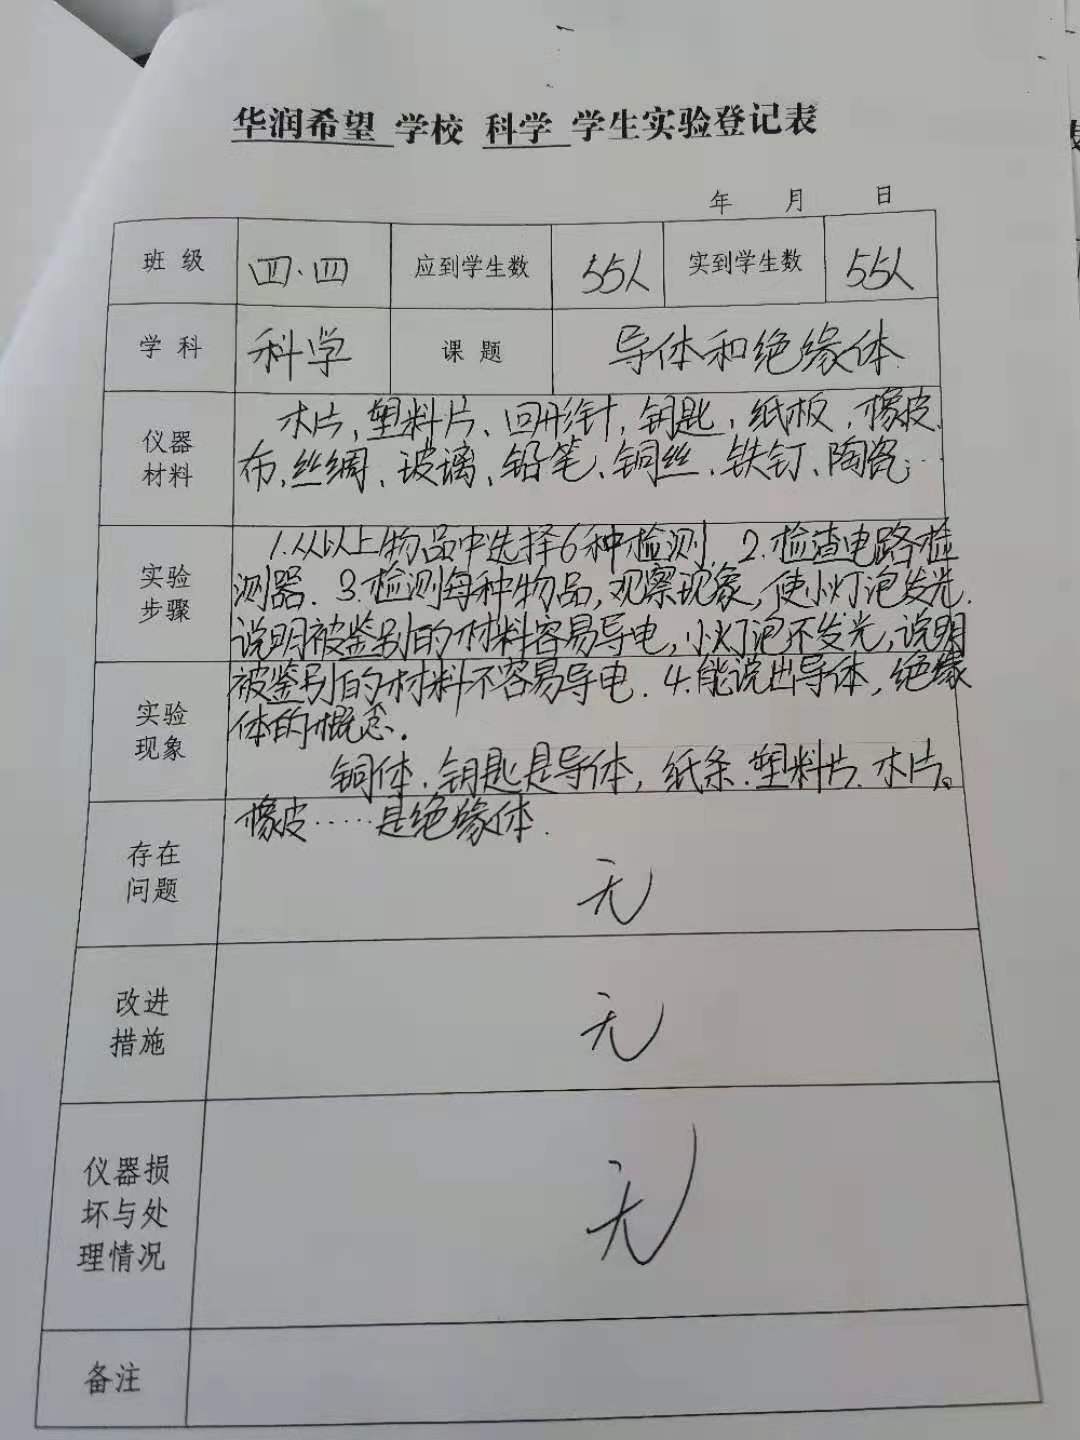 华润希望 学校 科学 学生实验登记表
年 月 日
班级 四.四 应到学生数 55人 实到学生数 55人
学科 科学 课题 导体和绝缘体
仪器材料
木片、塑料片、回形针、钥匙、纸板、橡皮、
布、丝绸、玻璃、铅笔、铜丝、铁钉、陶瓷……
实验步骤
1.从以上物品中选择6种检测 2.检查电路检
测器. 3.检测每种物品,观察现象,使小灯泡发光.
说明被鉴别的材料容易导电,小灯泡不发光,说明
实验现象
被鉴别的材料不容易导电. 4.能说出导体,绝缘
体的概念.
铜体.钥匙是导体,纸条.塑料片.木片。
存在问题
橡皮……是绝缘体.
无
改进措施
无
仪器损坏与处理情况
无
备注